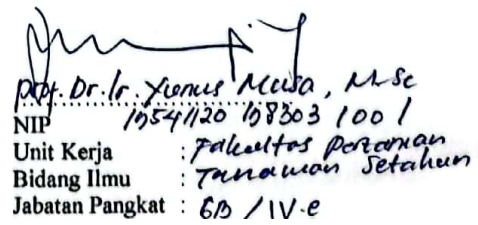 Prof. Dr. Ir. Yunus Musa, M.Sc
NIP 19541120 198303 1 001
Unit Kerja : Fakultas Pertanian
Bidang Ilmu : Tanaman Setahun
Jabatan Pangkat : GB / IV-e